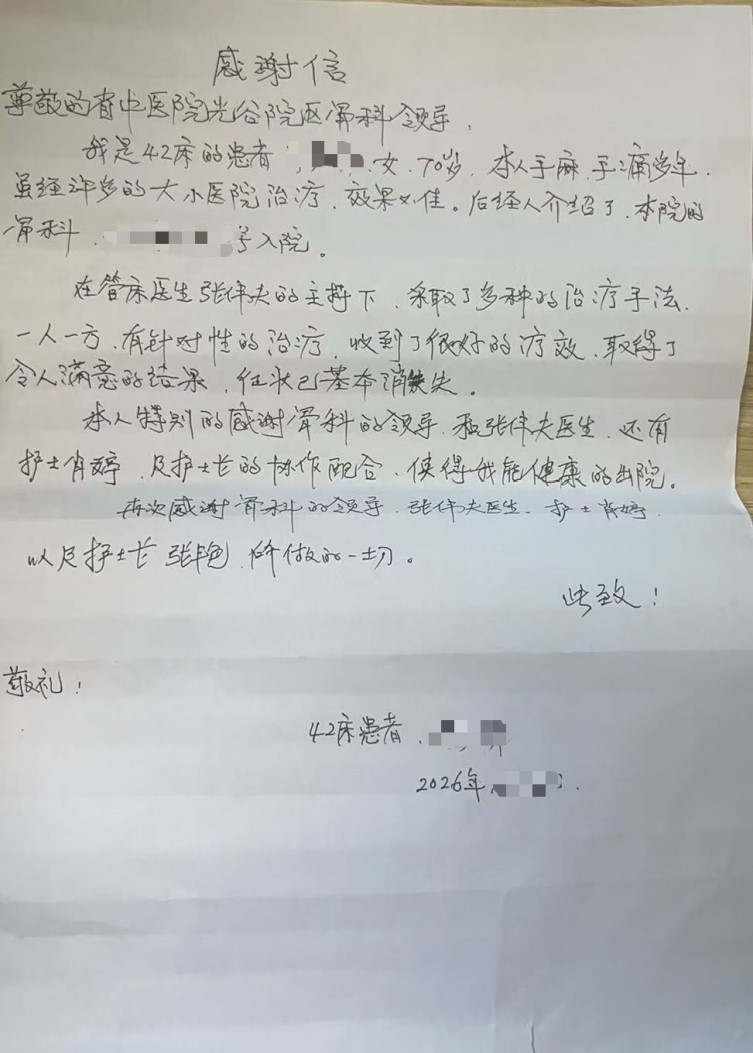 感谢信
尊敬的省中医院光谷院区骨科领导,
我是42床的患者, 女、70岁, 本人手麻、手痛多年,
虽经许多的大小医院治疗、效果不佳。后经人介绍了、本院的
骨科、 号入院。
在管床医生张伟夫的主持下、采取了多种的治疗手法、
一人一方、有针对性的治疗、收到了很好的疗效、取得了
令人满意的结果、症状已基本消失。
本人特别的感谢骨科的领导、和张伟夫医生、还有
护士肖婷、及护士长的协作配合、使得我能健康的出院。
再次感谢骨科的领导、张伟夫医生、护士肖婷、
以及护士长张艳、所做的一切。
此致!
敬礼!
42床患者、
2026年